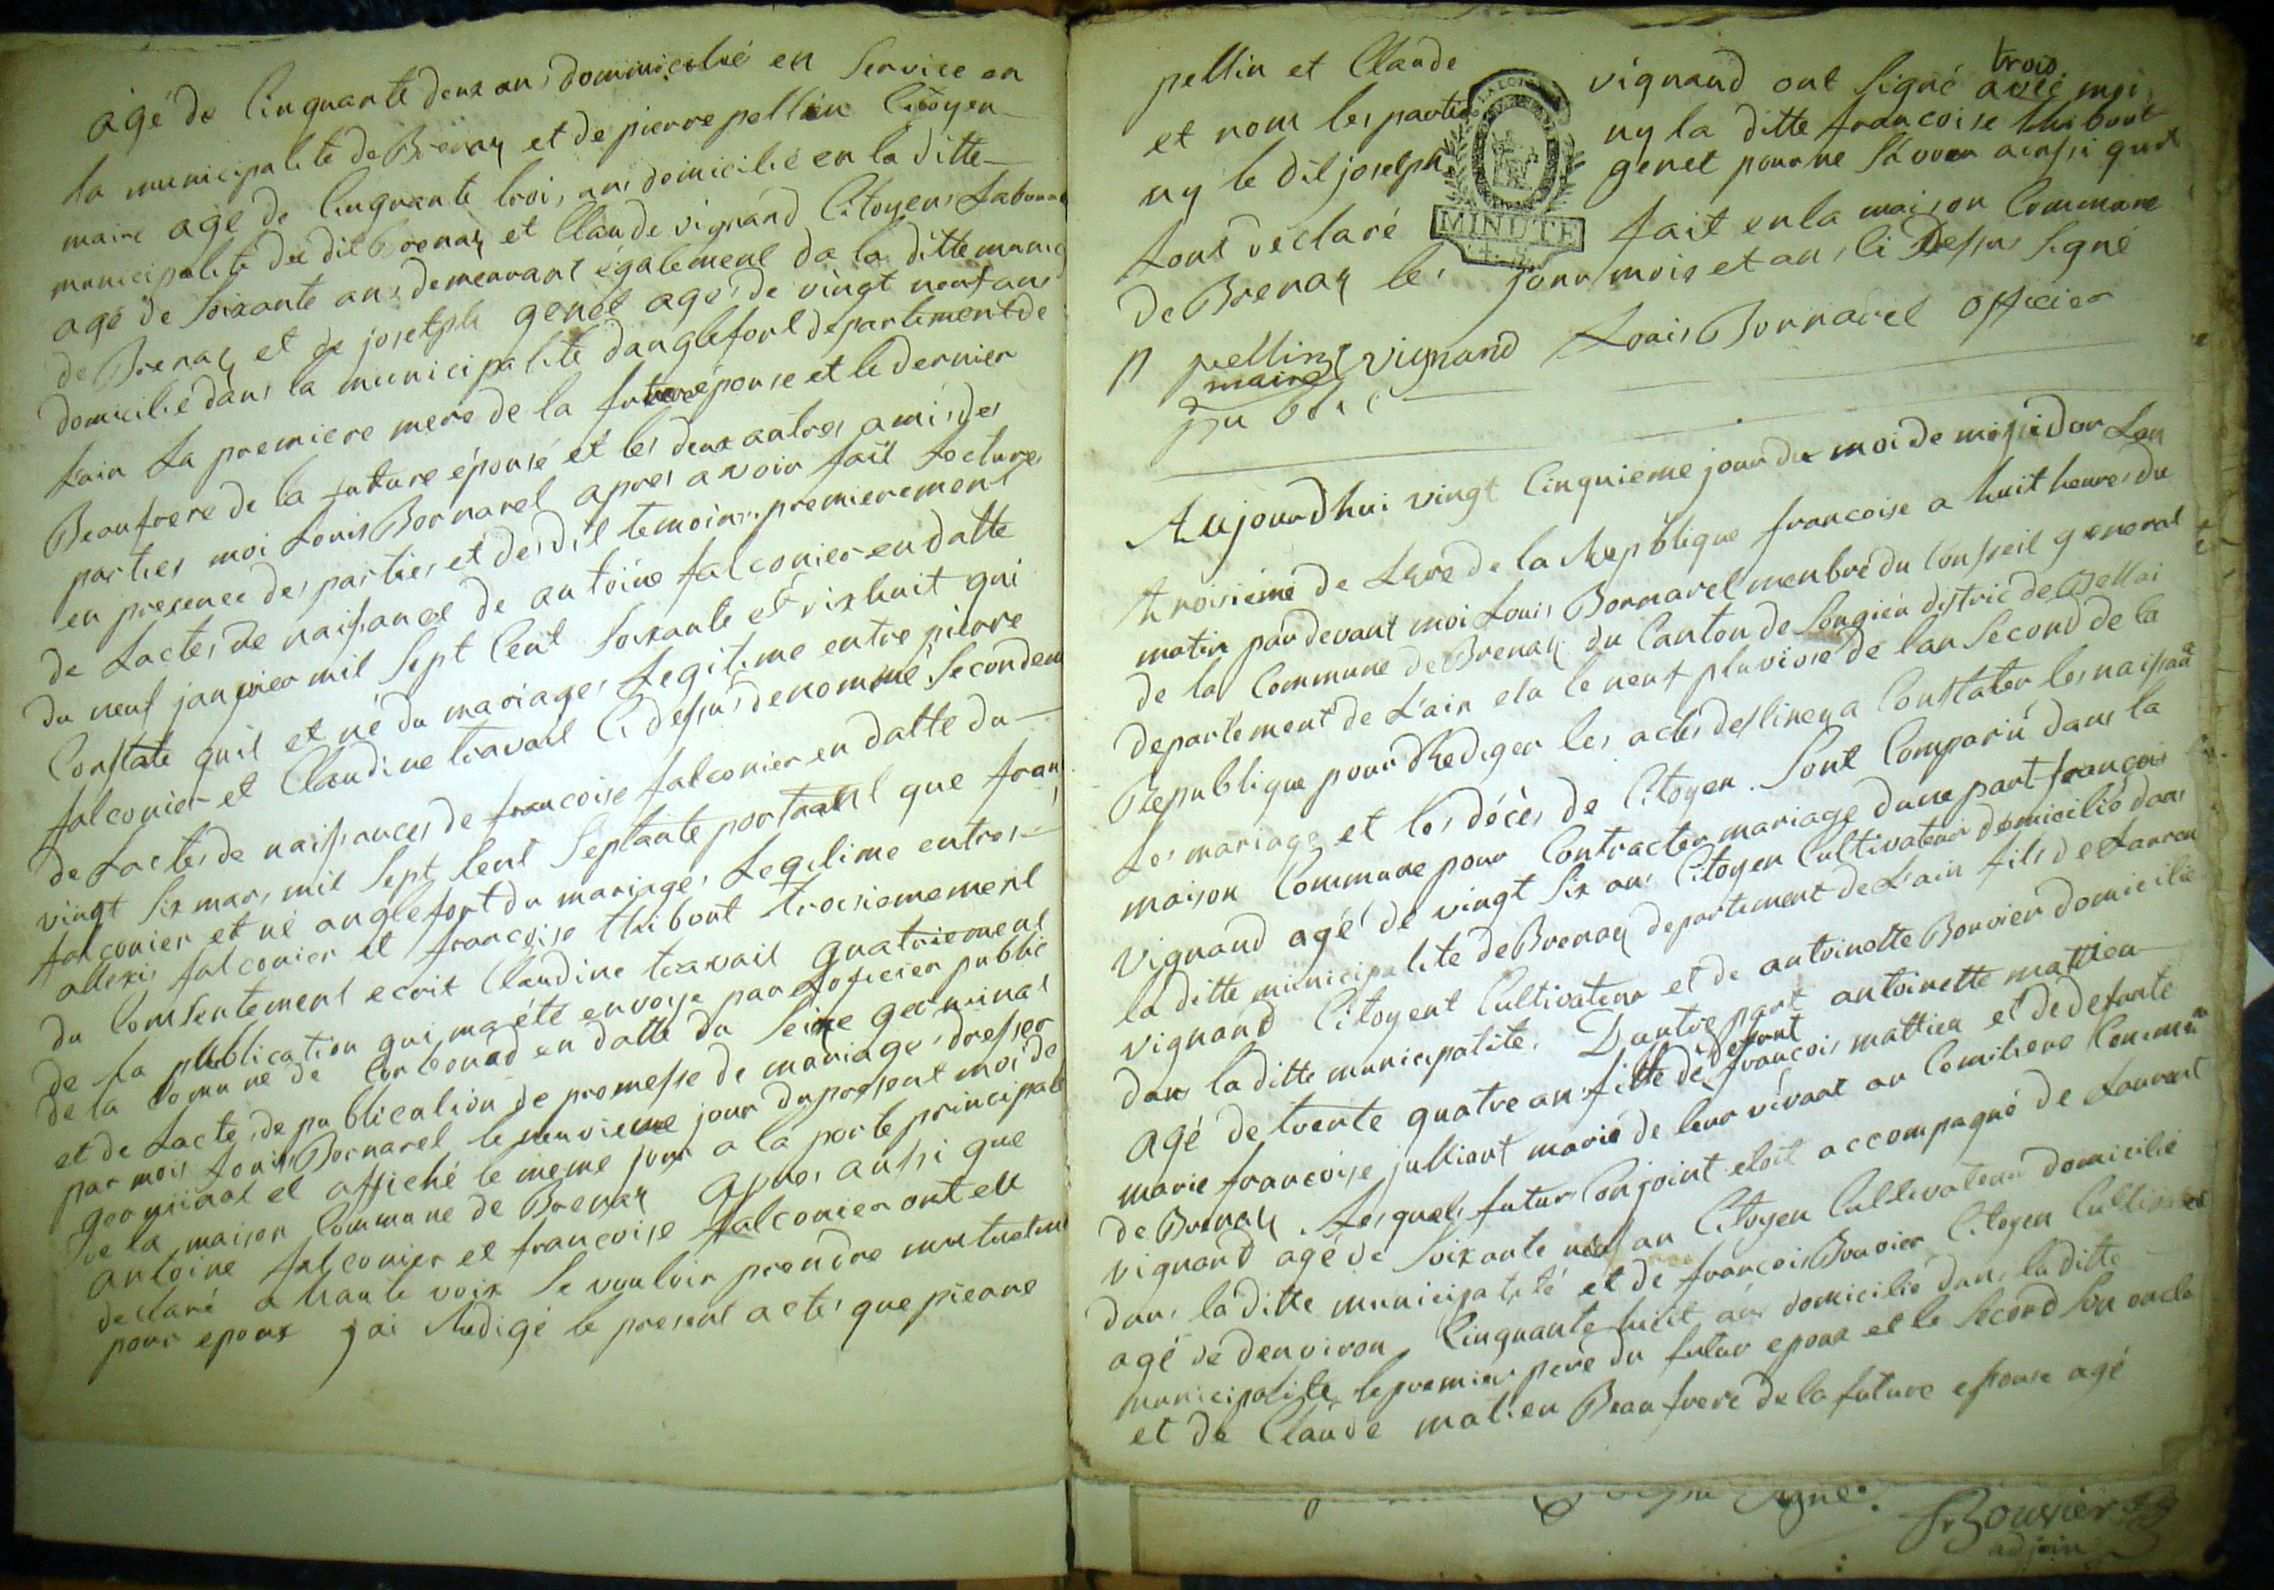 agé de Cinquante deux ans domimicilié en Service en
la municipalité de Brenaz et de pierre pellin Citoyen
maire age de Cinquante troi, ans domicilié en la ditte
municipalité du dit Brenaz et Claude vignand Citoyens Labour
agé de soixante ans demeurant également da la ditte munici
de Brenaz et de josetph genet agé de vingt neuf ans
domicilié dans la municipalité danglefort departement de
Lain La premiere mere de la future épouse et le dernier
Beaufrere de la future épouse et les deux autres amis des
parties moi Louis Bornarel apres avoir fait Lectures
en presence des parties et des dit temoins premierement
de Lactes de naissance de antoine falconier en datte
du neuf janvier mil Sept Cent soixante et dixhuit qui
Constate quil et né du mariages Legitime entre pierre
falconier et Claudine travail Ci dessus denommé Secondem
de Lactes de naissances de francoise falconier en datte du
vingt Six mars mil Sept Cent Septante portant que fran
falconier et né anglefort du mariages Legitime entres
allexis falconier et françoise thibout troisiemement
du Consentement ecrit Claudine travail quatriement
de la publication qui ma été envoye par Loficier public
de la Comune de Corbonod en datte du Seize germinal
et de Lactes de publication de promesse de mariages dresser
par mois Louis Bornarel le neuvieme jour du present moi de
germinal et affiché le meme jour a la porte principale
de la maison Commune de Brenaz apres aussi que
antoine falconier et françoise falconier ont eu
declaré a haute voix Se vouloir prendre mutuelem
pour epoux jai Redigé le present actes que pieare
pellin et Claude vignand ont Signé avec moi
trois
et nom les parties ny la ditte francoise thibout
ny le dit josetph genet pour ne Savoir ainsi quil
Lont déclaré fait en la maison Commune
MINUTE
de Brenaz les jour mois et an Ci Dessus Signé
p pellin vignand Louis Bornarel officier
maire
publi c
Aujourdhui vingt Cinquieme jour du moi de messidor Lan
troisieme de Lere de la Republique francoise a huit heures du
matin par devant moi Louis Bornarel menbre du Conseil general
de la Commune de Brenaz du Canton de Songieu distric de Bellai
departement de Lain elu le neuf pluviose de lan Second de la
Republique pour Rediger les actes destines a Constater les naissan
Les mariages et les décès de Citoyen. Sont Comparu dans la
maison Commune pour Contracter mariage dune part françois
vignand agé de vingt Six ans Citoyen Cultivateur domicilié dans
la ditte municipalité de Brenaz departement de Lain fils de Lauren
vignand Citoyent Cultivateur et de antoinette Bouvier domicilié
dans la ditte municipalité. Dautre part antoinette mattieu
agé de trente quatre ans fille de defunt francois mattieu et de defunte
marie francoise julliant marié de leur vivant au Comiliene Commun
de Brenaz. Lesquels futurs Conjoint etoit accompagné de Laurent
vignand agé de Soixante neuf an Citoyen Cultivateur domicilié
dans la ditte municipalité et de françois Bouvier Citoyen Cultivat
agé de denviron Cinquante huit ans domicilié dans la ditte
municipalite le premier pere du futur epoux et le Second Son oncle
et de Claude matieu Beaufrere de la future epouse agé
Signé.
Bouvier
adjoin